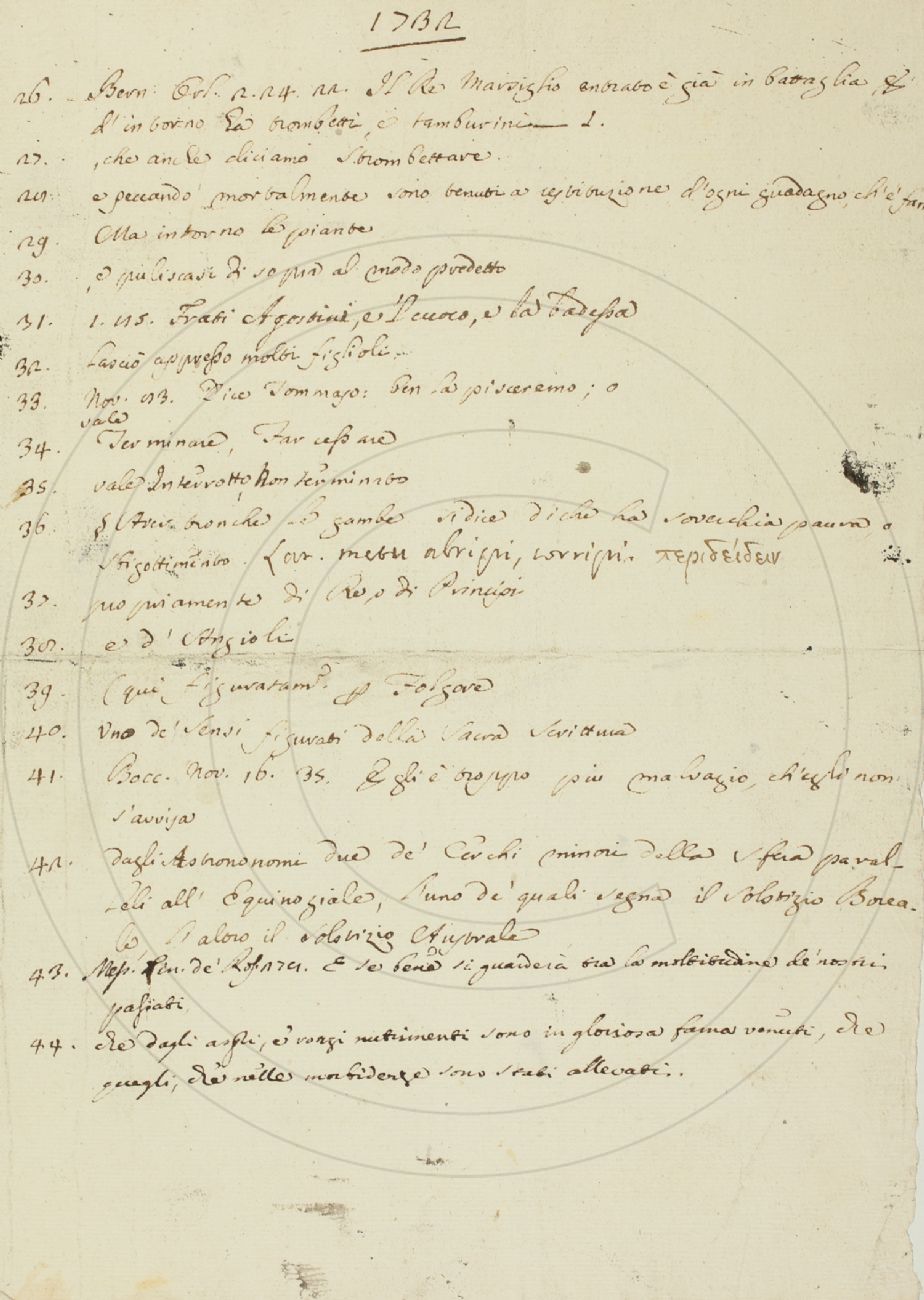 1732
26. Bern. Orl. 2. 24. 22. Il Re Marsiglio entrato è già in battaglia, e
d'intorno ha trombetti, e tamburini 1.
27. , che anche diciamo Strombettare.
28. e peccando mortalmente sono tenuti a restituzione d'ogni guadagno, ch'e' fan
29. Ma intorno le piante
30. , e puliscasi di sopra al modo predetto
31. 1. 118. Frati Agostini, e 'l cuoco, e la badessa
32. lasciò appresso molti figlioli.
33. Nov. 83. Dice Tommaso: ben la pisceremo; o
34. vale Terminare, Far cessare
35. vale Interrotto, Non terminato
36. § Aver tronche le gambe si dice di chi ha soverchia paura, o
sbigottimento. Lat. metu abripi, corripi. περιδείδειν
37. propriamente di Re, o di Principi
38. e d'Angioli
39. (qui figuratam. p Folgore
40. Uno de' Sensi figurati della Sacra Scrittura
41. Bocc. Nov. 16. 35. Egli è troppo più malvagio, ch'egli non
s'avvisa
42. dagli Astrononomi due de' Cerchi minori della sfera paral-
leli all' Equinoziale, l'uno de' quali segna il solstizio Borea-
le l'altro il solstizio Australe
43. Mess. Cin. de' Ross. 178. E se bene si guarderà tra la moltitudine de' nostri
passati,
44. che dagli aspri, e rozzi nutrimenti sono in gloriosa fama venuti, che
quegli, che nelle morbidezze sono stati allevati.